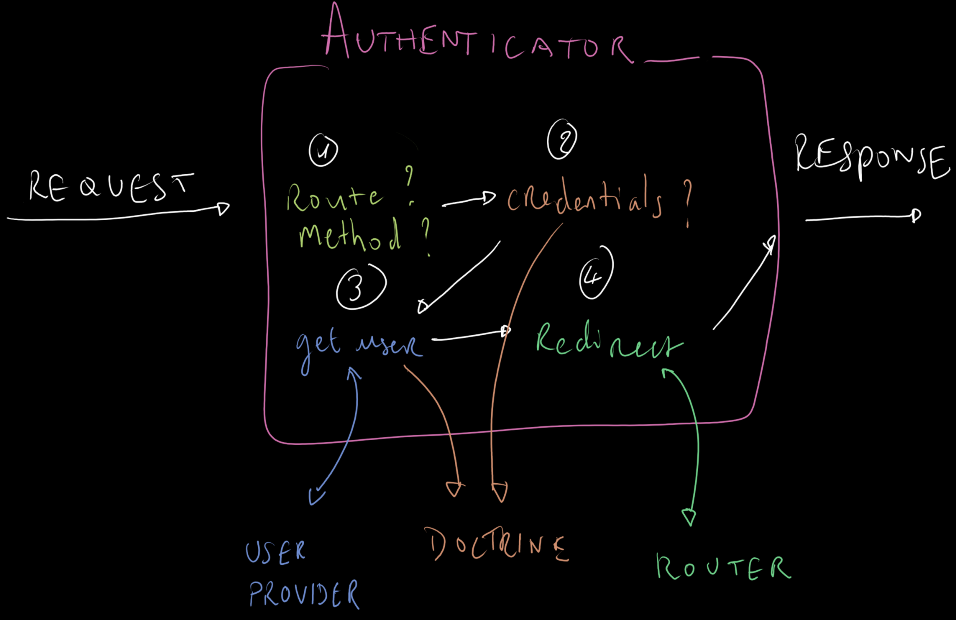 AUTHENTICATOR
REQUEST
RESPONSE
1
2
Route ?
Method ?
credentials ?
3
4
get user
Redirect
USER
PROVIDER
DOCTRINE
ROUTER